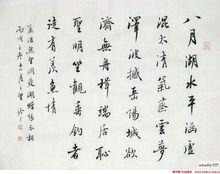 八月湖水平涵虛
混太清氣蒸雲夢
澤波撼岳陽城欲
濟無舟楫端居恥
聖明坐觀垂釣者
徒有羨魚情
孟浩然望洞庭湖贈張丞相